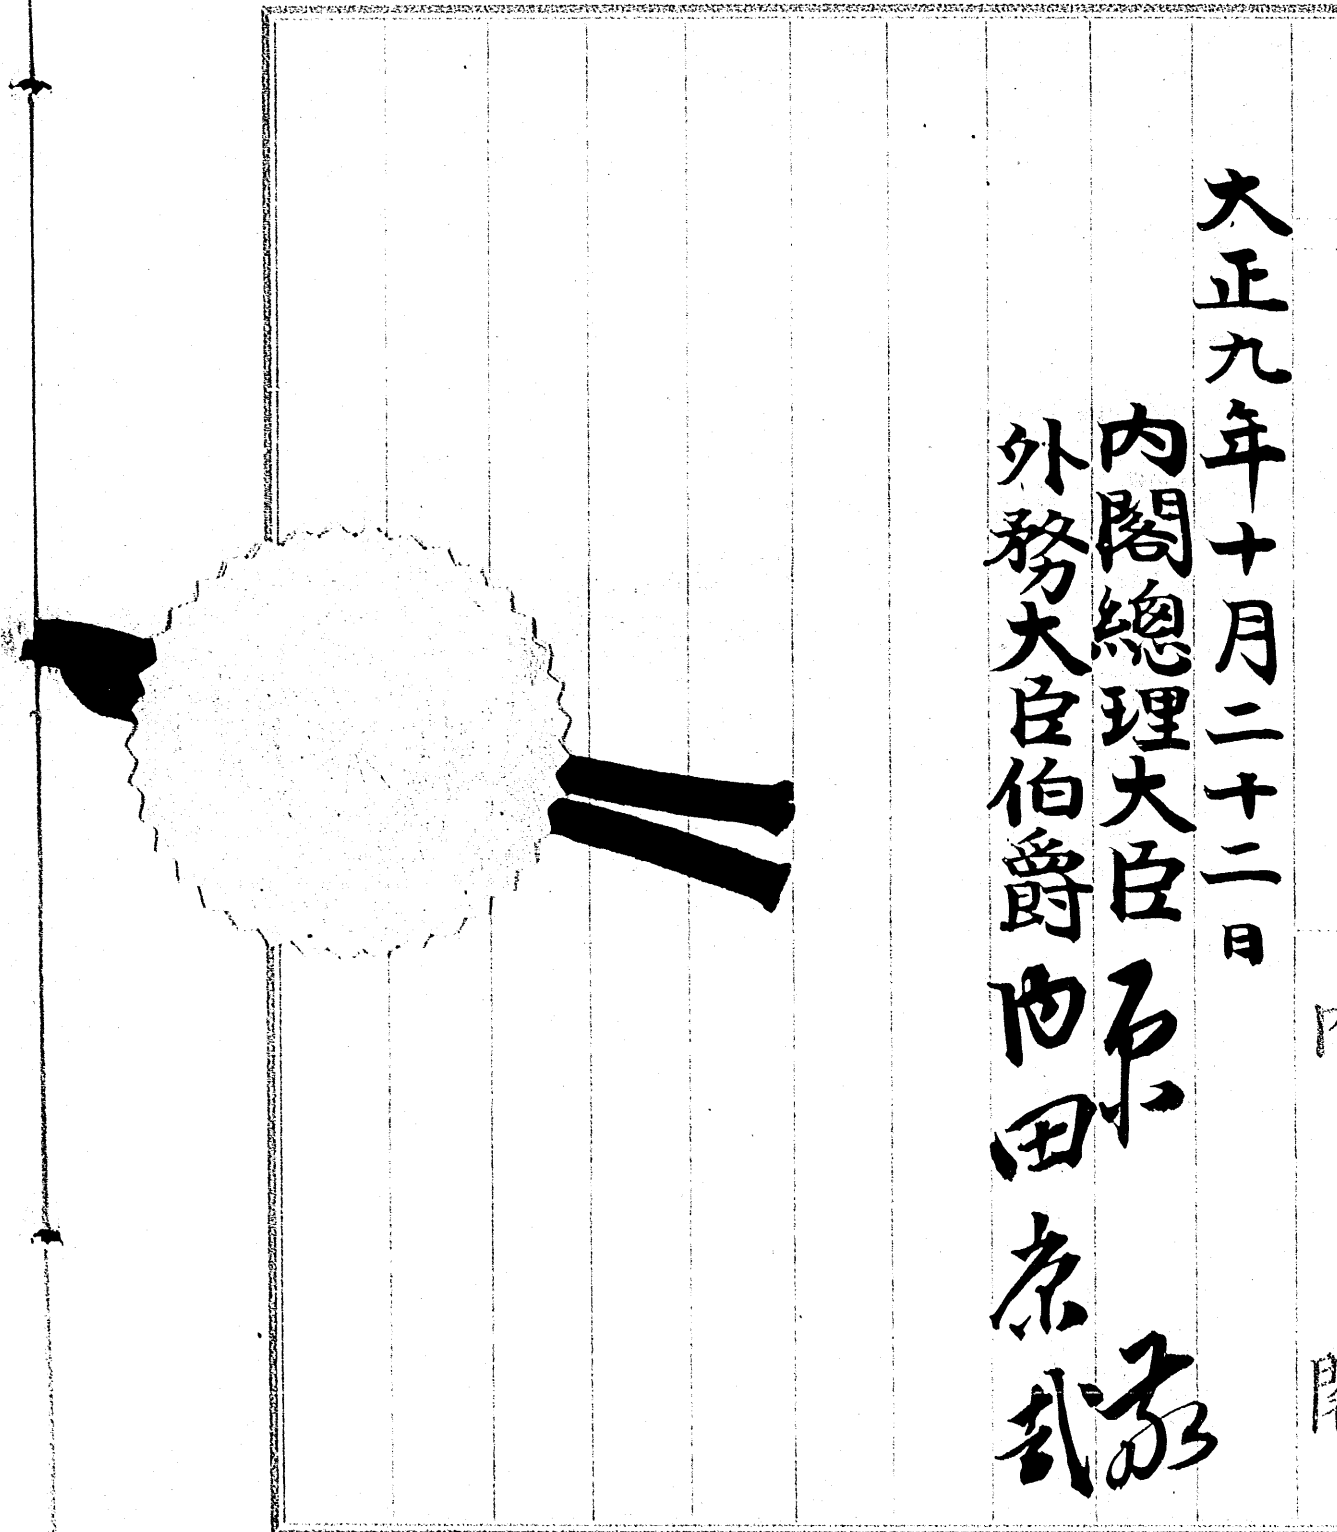 大正九年十月二十二日
內閣總理大臣 原 敬
外務大臣伯爵 內田康哉
內閣